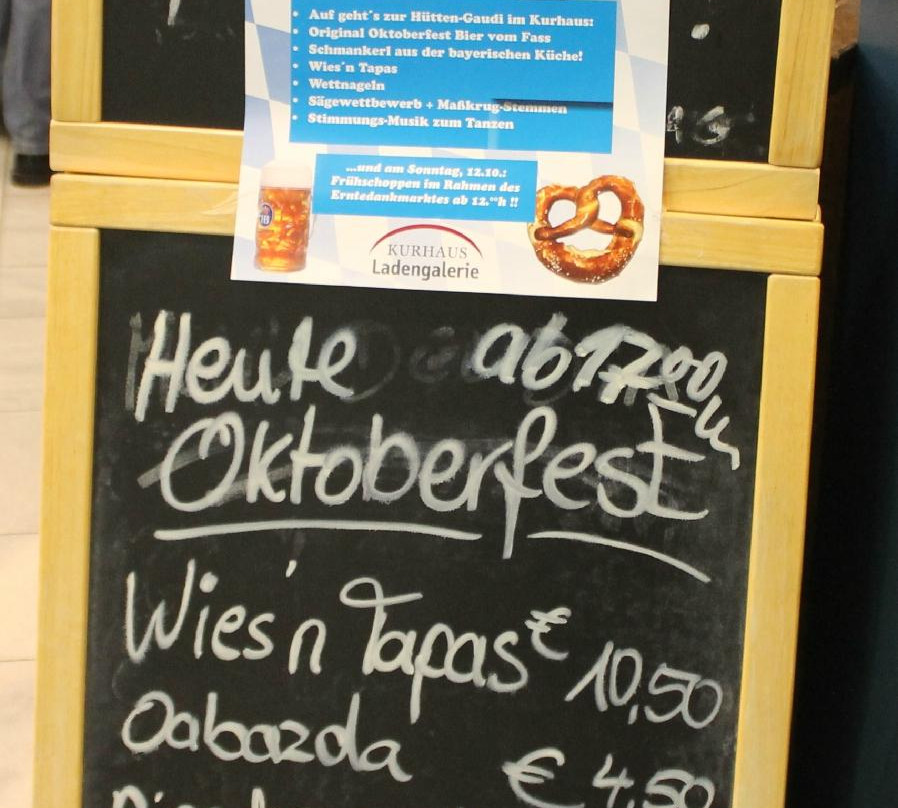 • Auf geht´s zur Hütten-Gaudi im Kurhaus:
• Original Oktoberfest Bier vom Fass
• Schmankerl aus der bayerischen Küche!
• Wies´n Tapas
• Wettnageln
• Sägewettbewerb + Maßkrug-Stemmen
• Stimmungs-Musik zum Tanzen
...und am Sonntag, 12.10.:
Frühschoppen im Rahmen des
Erntedankmarktes ab 12.°°h !!
KURHAUS
Ladengalerie
Heute ab 17°° h
Oktoberfest
Wies'n Tapas € 10,50
Oabazda € 4,50